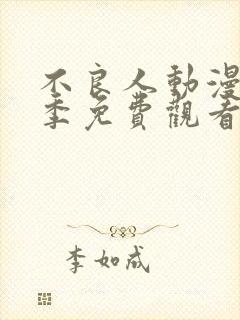 不良人動漫
季免費觀看
李如成